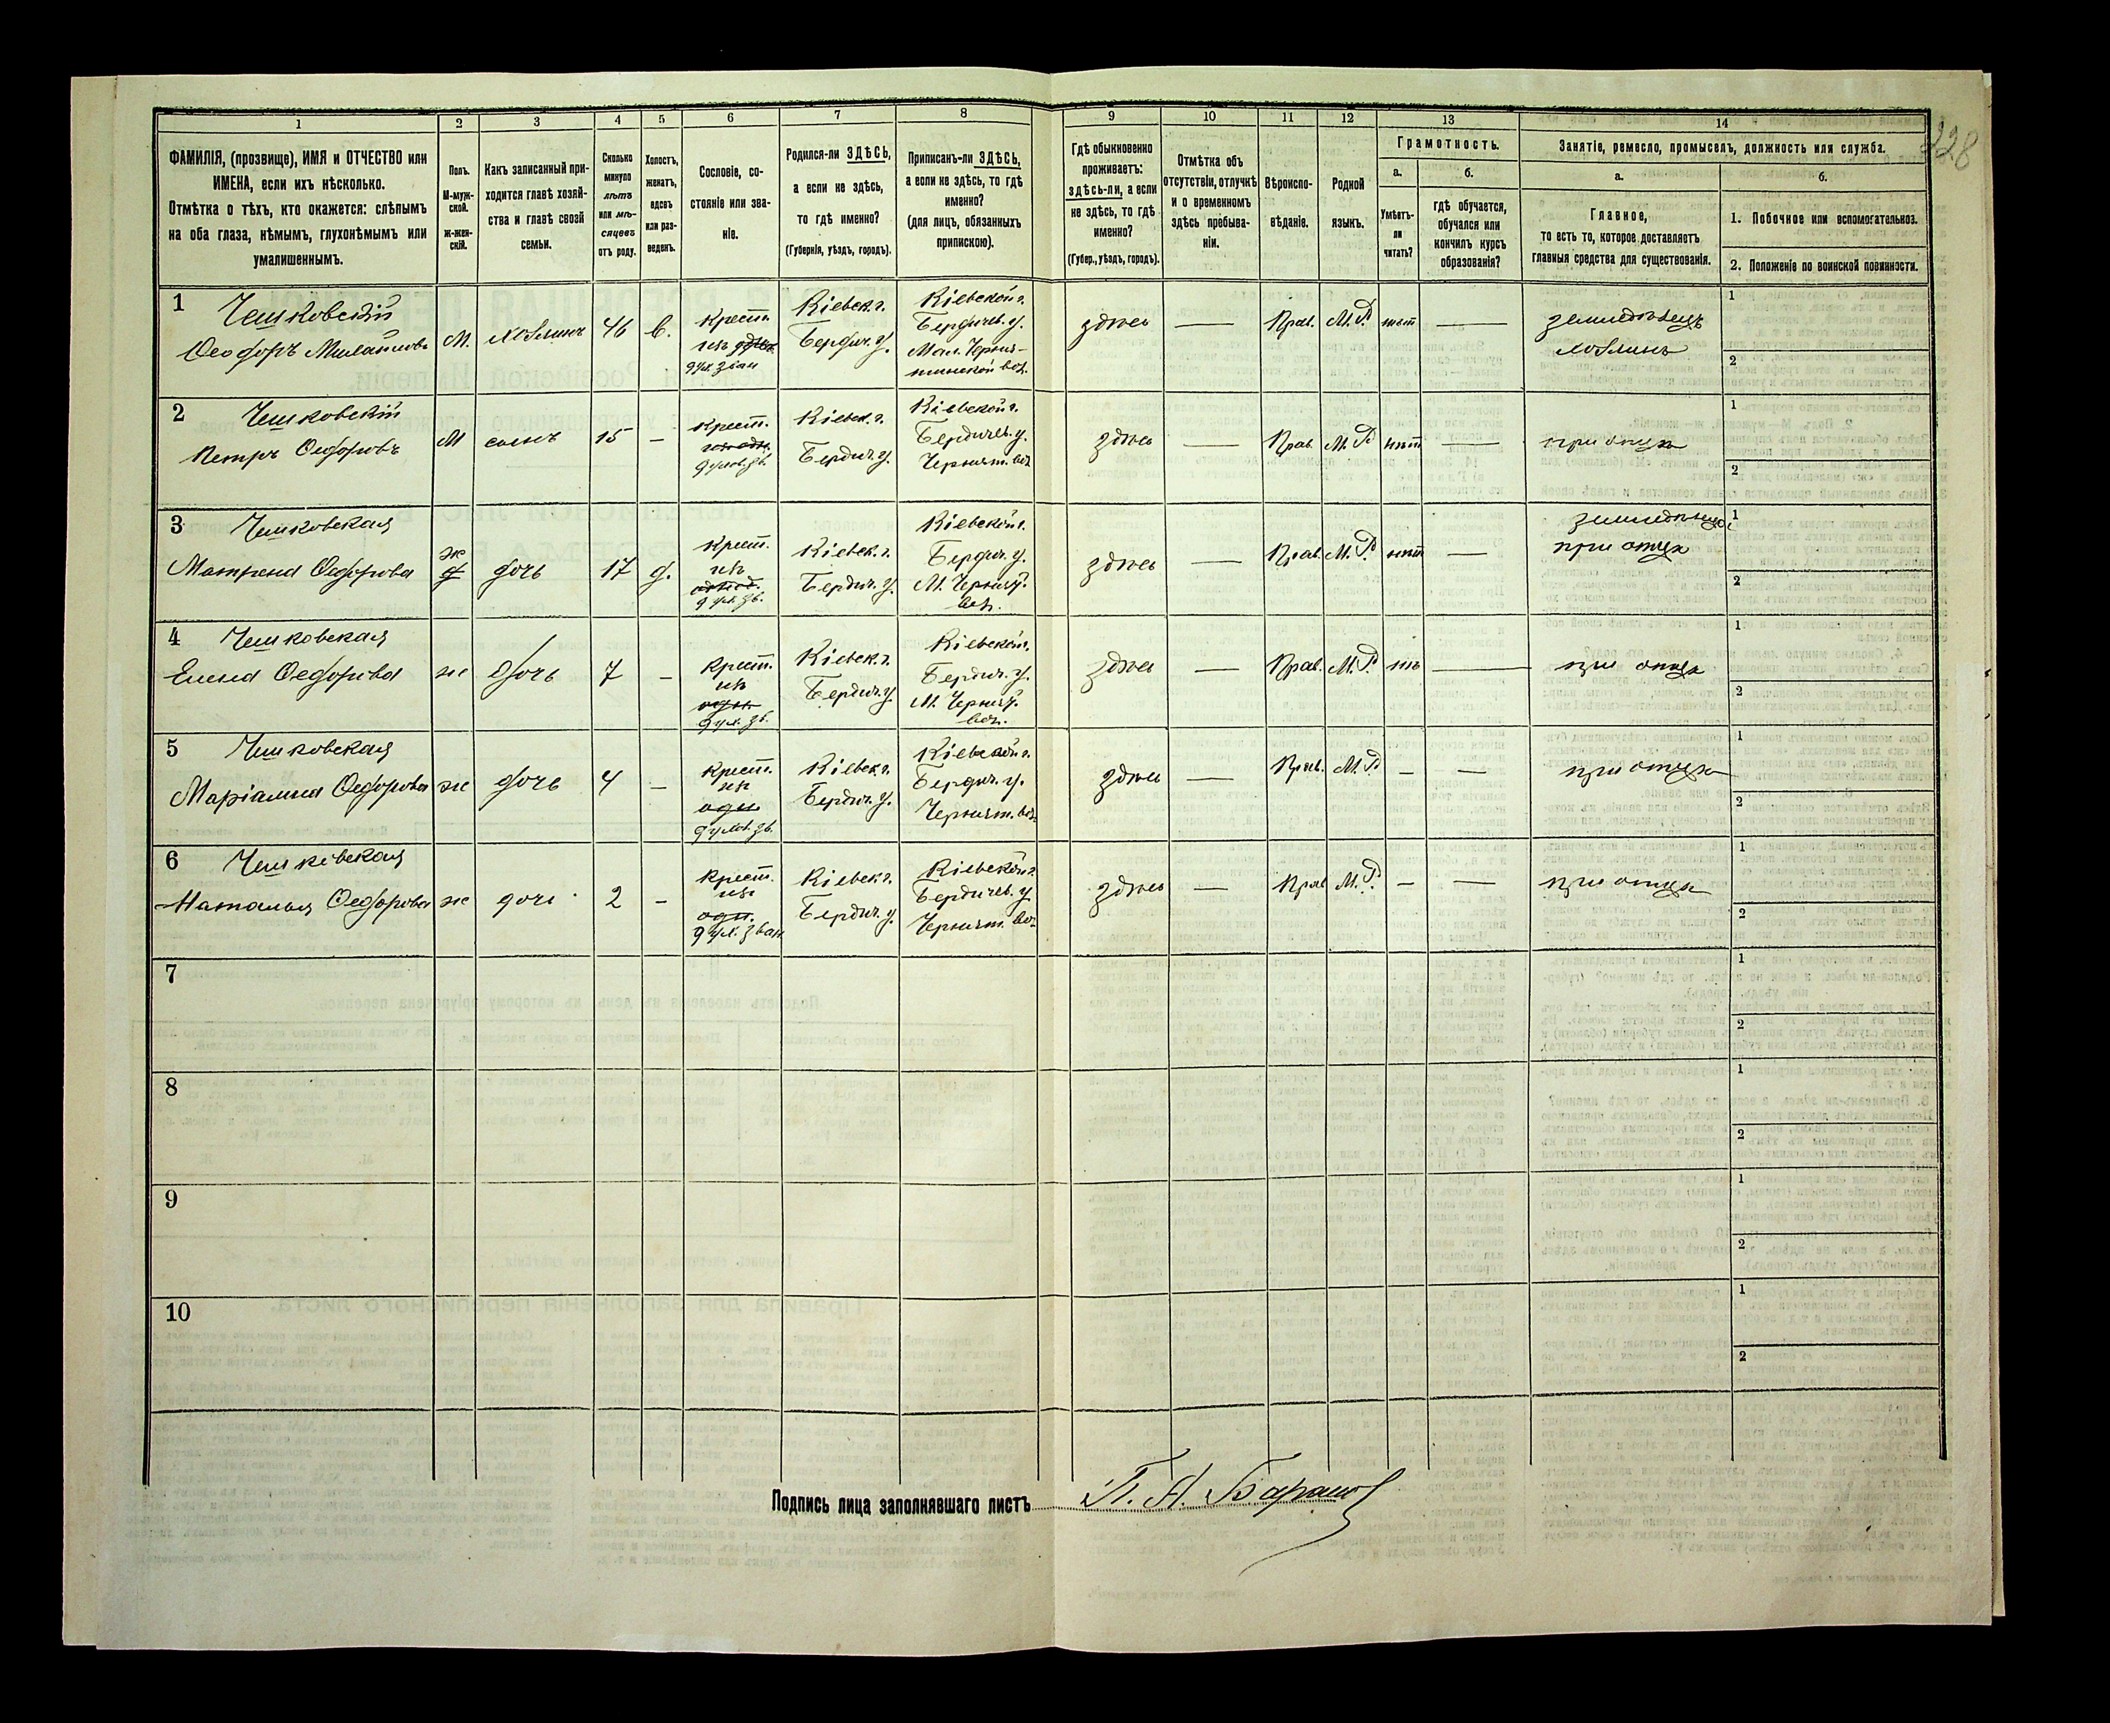 228
1 2 3 4 5 6 7 8 9 10 11 12 13 14
ФАМИЛІЯ, (прозвище), ИМЯ и ОТЧЕСТВО или
ИМЕНА, если ихъ нѣсколько.
Отмѣтка о тѣхъ, кто окажется: слѣпымъ
на оба глаза, нѣмымъ, глухонѣмымъ или
умалишеннымъ.
Полъ.
М-муж-
ской.
Ж-жен-
скій.
Какъ записанный при-
ходится главѣ хозяй-
ства и главѣ своей
семьи.
Сколько
минуло
лѣтъ
или мѣ-
сяцевъ
отъ роду.
Холостъ,
женатъ,
вдовъ
или раз-
веденъ.
Сословіе, со-
стояніе или зва-
ніе.
Родился-ли ЗДѢСЬ,
а если не здѣсь,
то гдѣ именно?
(Губернія, уѣздъ, городъ).
Приписанъ-ли ЗДѢСЬ,
а если не здѣсь, то гдѣ
именно?
(для лицъ, обязанныхъ
припискою).
Гдѣ обыкновенно
проживаетъ:
здѣсь-ли, а если
не здѣсь, то гдѣ
именно?
(Губер., уѣздъ, городъ).
Отмѣтка объ
отсутствіи, отлучкѣ
и о временномъ
здѣсь пребыва-
ніи.
Вѣроиспо-
вѣданіе.
Родной
языкъ.
Грамотность.
а.
Умѣетъ-
ли
читать?
б.
гдѣ обучается,
обучался или
кончилъ курсъ
образованія?
Занятіе, ремесло, промыселъ, должность или служба.
а.
Главное,
то есть то, которое доставляетъ
главныя средства для существованія.
б.
1. Побочное или вспомогательное.
2. Положеніе по воинской повинности.
1 Чешковскій
Ѳеодоръ
М. хозяинъ 46 в.
Крест.
изъ
Кіевск. г.
Бердич. у.
Кіевской г.
Бердичев. у.
здѣсь — Прав. М. Р. нѣт —
земледѣлецъ
хозяинъ
1
2
2 Чешковскій
Петръ Ѳедоровъ
М сынъ 15 –
Крест.
Кіевск. г.
Бердич. у.
Кіевской г.
Бердичев. у.
Чернят. вол.
здѣсь — Прав. М. Р. нѣт —
при отцѣ
1
2
3 Чешковская
Матрена Ѳедорова
ж дочь 17 д.
Крест.
изъ
Кіевск. г.
Бердич. у.
Кіевской г.
Бердич. у.
вол.
здѣсь — Прав. М. Р. нѣт —
при отцѣ
1
2
4 Чешковская
Елена Ѳедорова
ж дочь 7 –
Крест.
изъ
Кіевск. г.
Бердич. у.
Кіевской г.
Бердич. у.
вол.
здѣсь — Прав. М. Р. —
при отцѣ
1
2
5 Чешковская
Маріанна Ѳедорова
ж дочь 4 –
Крест.
изъ
Кіевск. г.
Бердич. у.
Кіевской г.
Бердич. у.
Чернят. вол.
здѣсь — Прав. М. Р. – —
при отцѣ
1
2
6 Чешковская
Наталья Ѳедорова
ж дочь 2 –
Крест.
изъ
Кіевск. г.
Бердич. у.
Кіевской г.
Бердичев. у.
Чернят. вол.
здѣсь — Прав. М. Р. – —
при отцѣ
1
2
7
1
2
8
1
2
9
1
2
10
1
2
Подпись лица заполнявшаго листъ